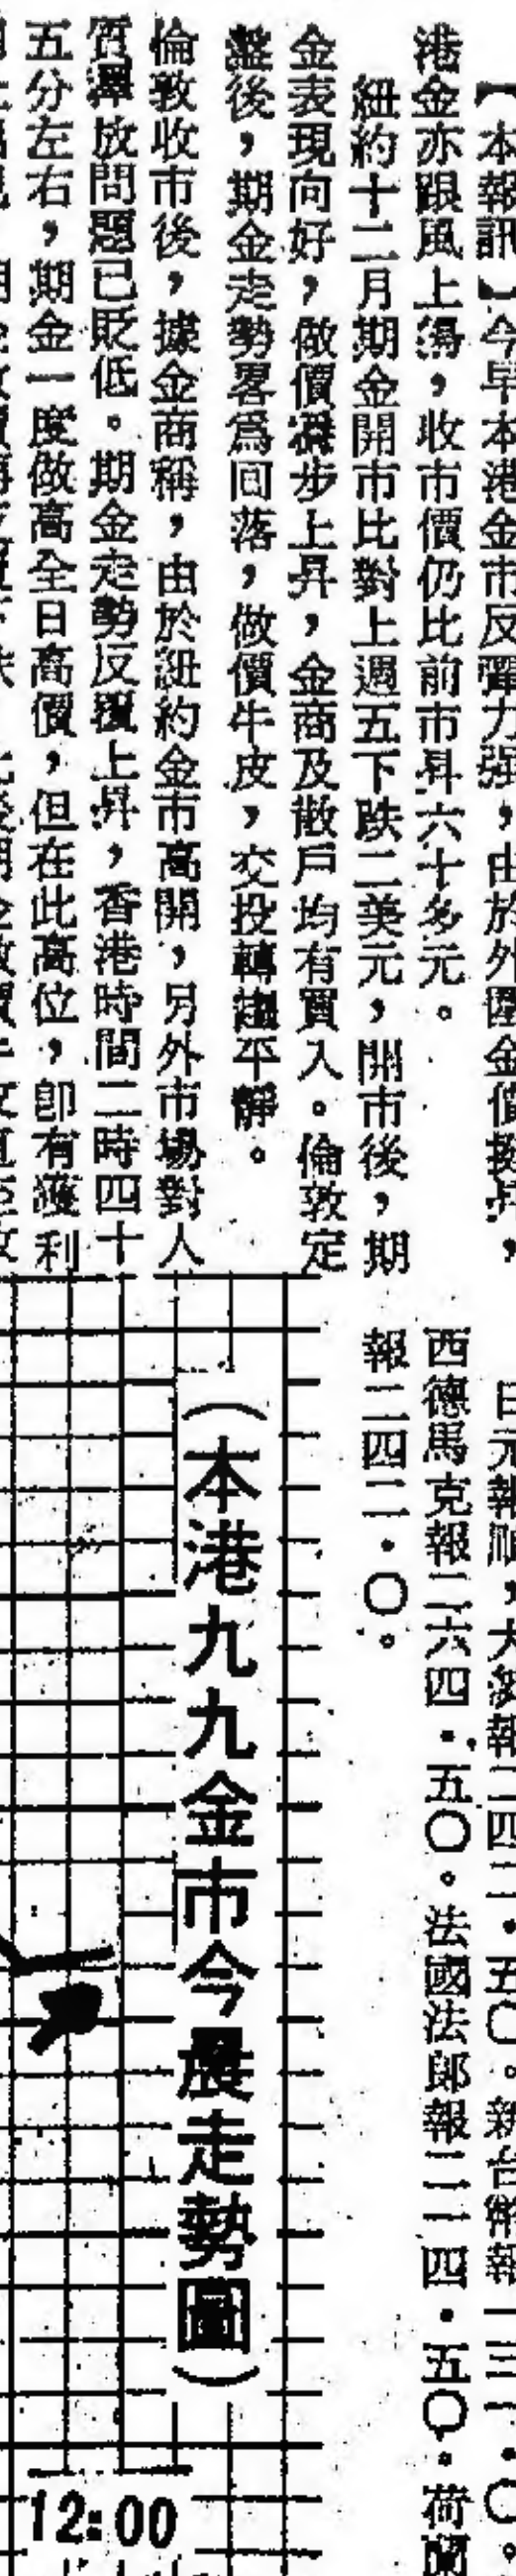 【本報訊】今早本港金市反彈力強，由於外圍金價挺升，
港金亦跟風上揚，收市價仍比前市昇六十多元。
紐約十二月期金開市比對上週五下跌二美元，開市後，期
金表現向好，做價步上昇，金商及散戶均有買入。倫敦定
盤後，期金走勢畧爲回落，做價牛皮，交投轉趨平靜。
倫敦收市後，據金商稱，由於紐約金市高開，另外市場對人
質釋放問題已貶低。期金走勢反覆上昇，香港時間二時四十
五分左右，期金一度做高全日高價，但在此高位，卽有獲利
日元報順，大鈔報二四二·五〇。新台幣報一三一·〇。
西德馬克報二六四·五〇。法國法郎報二一四·五〇。荷蘭
報二四二·〇。
（本港九九金市今晨走勢圖）
12:00